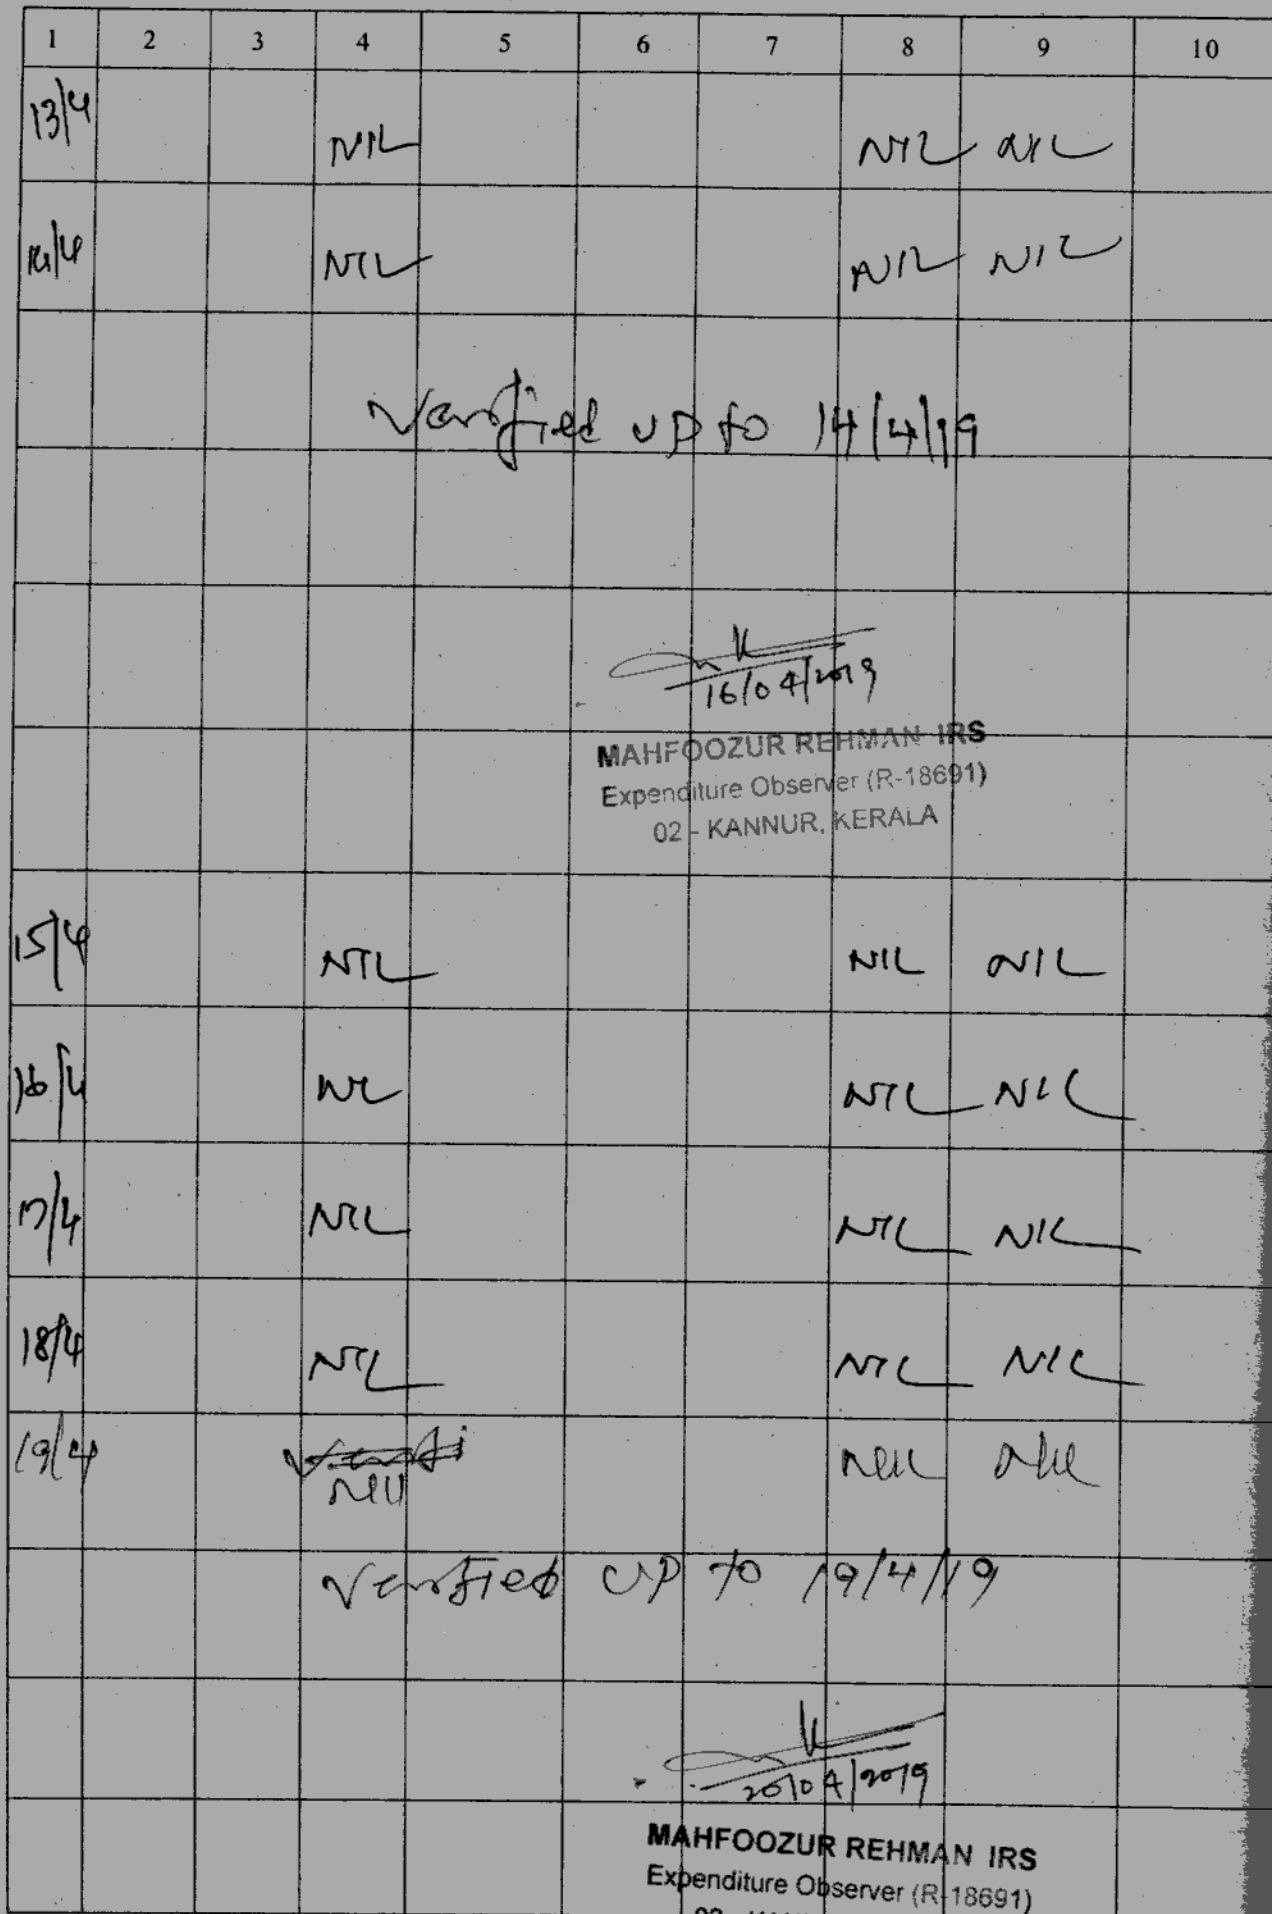 1 2 3 4 5 6 7 8 9 10
13/4 NIL NIL NIL
14/4 NIL NIL NIL
Verified up to 14/4/19
16/04/2019
MAHFOOZUR REHMAN IRS
Expenditure Observer (R-18691)
02 - KANNUR, KERALA
15/4 NIL NIL NIL
16/4 NIL NIL NIL
17/4 NIL NIL NIL
18/4 NIL NIL NIL
19/4 Nil Nil
Nil
Verified up to 19/4/19
20/04/2019
MAHFOOZUR REHMAN IRS
Expenditure Observer (R-18691)